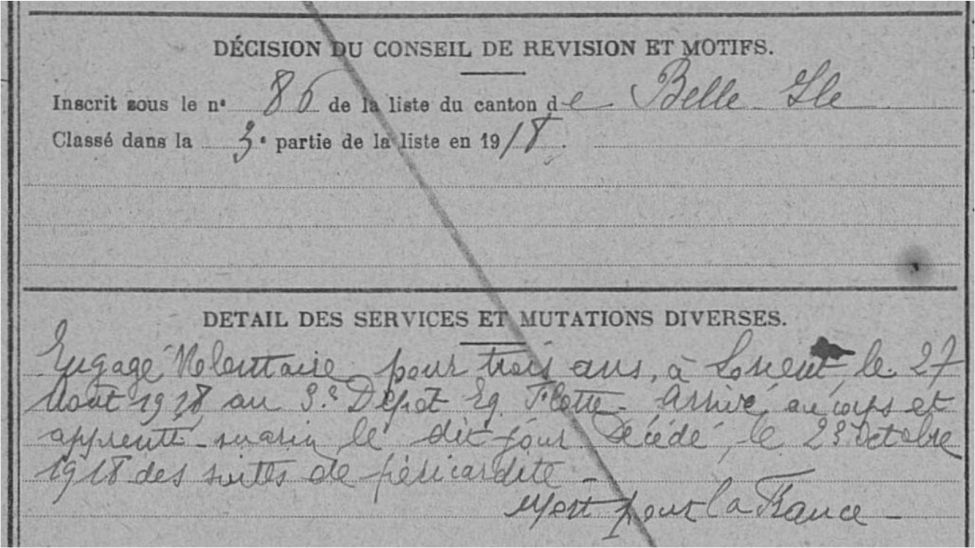 DÉCISION DU CONSEIL DE REVISION ET MOTIFS.
Inscrit sous le n° 86 de la liste du canton de Belle-Ile
Classé dans la 3e partie de la liste en 1918.
DETAIL DES SERVICES ET MUTATIONS DIVERSES.
Engagé Volontaire pour trois ans, à Lorient, le 27
Août 1918 au 3e Dépot Eq. Flotte - Arrivé au corps et
apprenti-marin le dit jour Décédé, le 23 Octobre
1918 des suites de péricardite -
Mort pour la France -